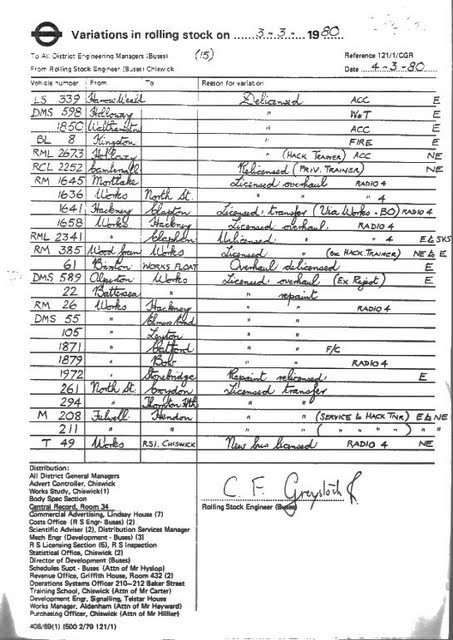 Variations in rolling stock on 3-3- 1980
To All District Engineering Managers (Buses) (15) Reference 121/1/CGR
From Rolling Stock Engineer (Buses) Chiswick Date 4-3-80
Vehicle number From To Reason for variation
LS 339 Harrow Weald Delicensed ACC E
DMS 598 Holloway " W&T E
1850 Walthamstow " ACC E
BL 8 Kingston " FIRE E
RML 2673 Holloway " (HACK TRAINER) ACC NE
RCL 2252 Camberwell Relicensed (PRIV. TRAINER) NE
RM 1645 Mortlake Licensed overhaul RADIO 4
1636 Works North St. " " " 4
1641 Hackney Clapton Licensed, transfer (Via Works - BO) RADIO 4
1658 Works Hackney Licensed overhaul RADIO 4
RML 2341 " Clapham Unlicensed " " 4 E & SKS
RM 385 Wood Green Works Licensed " (OE HACK TRAINER) NE & E
61 Brixton WORKS FLOAT Overhaul delicensed E
DMS 589 Alperton Works Licensed overhaul (Ex Reject) E
22 Battersea " " repaint E
RM 26 Works Hackney " " RADIO 4
DMS 55 " Elmers End " "
105 " Leyton " "
1871 " Catford " " F/C
1879 " Bow " " RADIO 4
1972 " Stonebridge Repaint relicensed E
261 North St. Croydon Licensed transfer
294 " Thornton Hth " "
M 208 Fulwell Hendon " " (SERVICE to HACK TNR) E & NE
211 " " " " ( " " " ) " "
T 49 Works RSI. CHISWICK New bus licensed RADIO 4 NE
Distribution:
All District General Managers
Advert Controller, Chiswick
Works Study, Chiswick(1)
Body Spec Section
Central Record, Room 34
Commercial Advertising, Lindsay House (7)
Costs Office (R S Engr- Buses) (2)
Scientific Adviser (2), Distribution Services Manager
Mech Engr (Development - Buses) (3)
R S Licensing Section (6), R S Inspection
Statistical Office, Chiswick (2)
Director of Development (Buses)
Schedules Supt - Buses (Attn of Mr Hyslop)
Revenue Office, Griffith House, Room 432 (2)
Operations Systems Officer 210-212 Baker Street
Training School, Chiswick (Attn of Mr Carter)
Development Engr, Signalling, Telstar House
Works Manager, Aldenham (Attn of Mr Hayward)
Purchasing Officer, Chiswick (Attn of Mr Hillier)
C. F. Greystock
Rolling Stock Engineer (Buses)
408/69(1) (500 2/79 121/1)